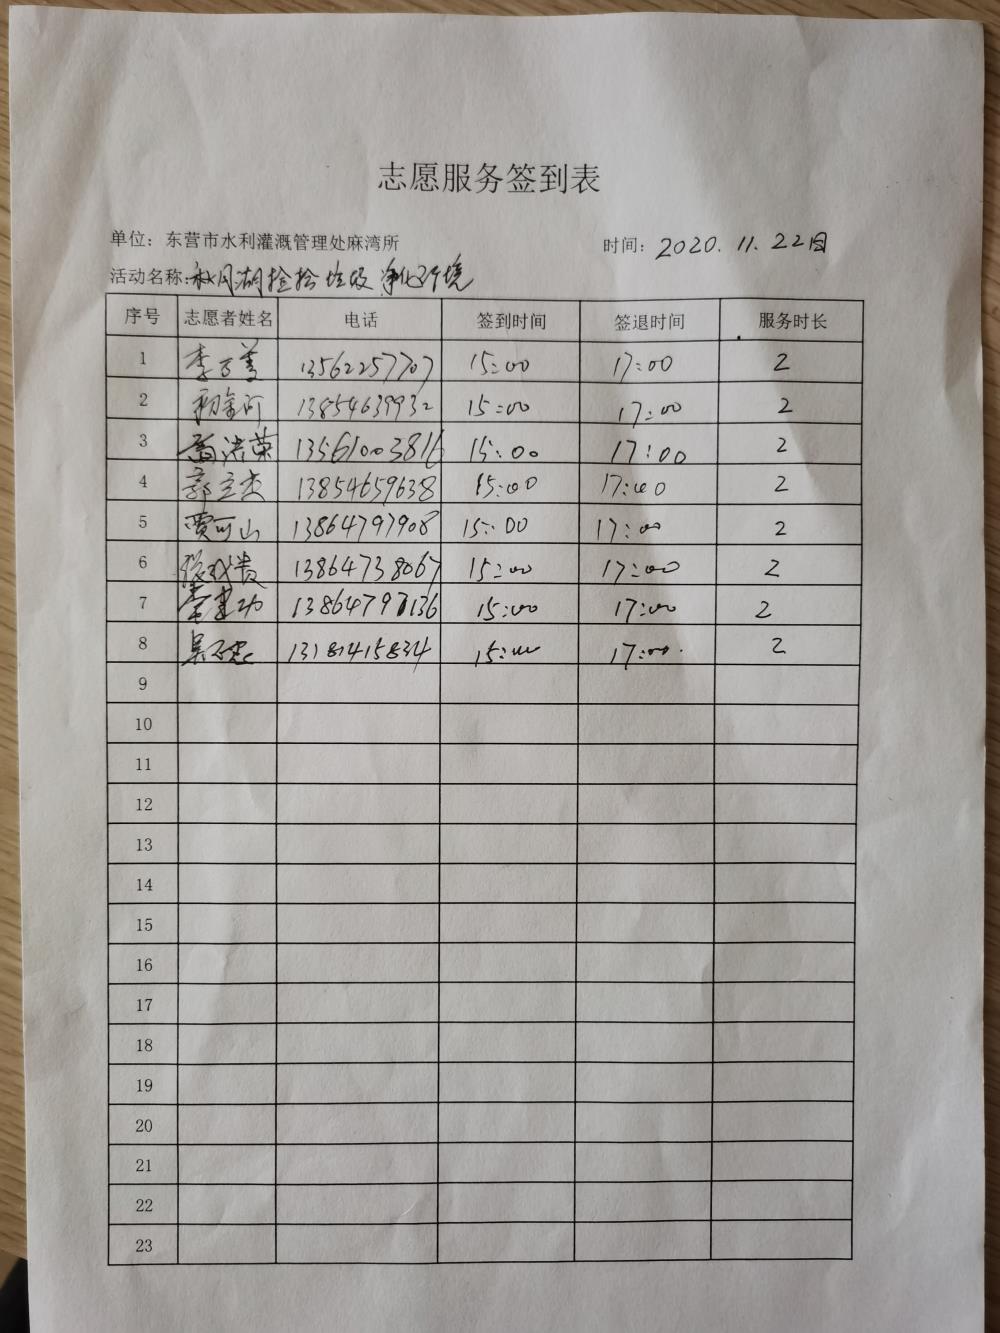 志愿服务签到表
单位：东营市水利灌溉管理处麻湾所 时间：2020.11.22日
活动名称：秋月湖捡拾垃圾 净化环境
序号 志愿者姓名 电话 签到时间 签退时间 服务时长
1 李万美 13562257707 15:00 17:00 2
2 13854639932 15:00 17:00 2
3 13561003816 15:00 17:00 2
4 郭立杰 13854659638 15:00 17:00 2
5 贾可山 13864797908 15:00 17:00 2
6 13864738067 15:00 17:00 2
7 李建功 13864797136 15:00 17:00 2
8 13181415834 15:00 17:00 2
9
10
11
12
13
14
15
16
17
18
19
20
21
22
23